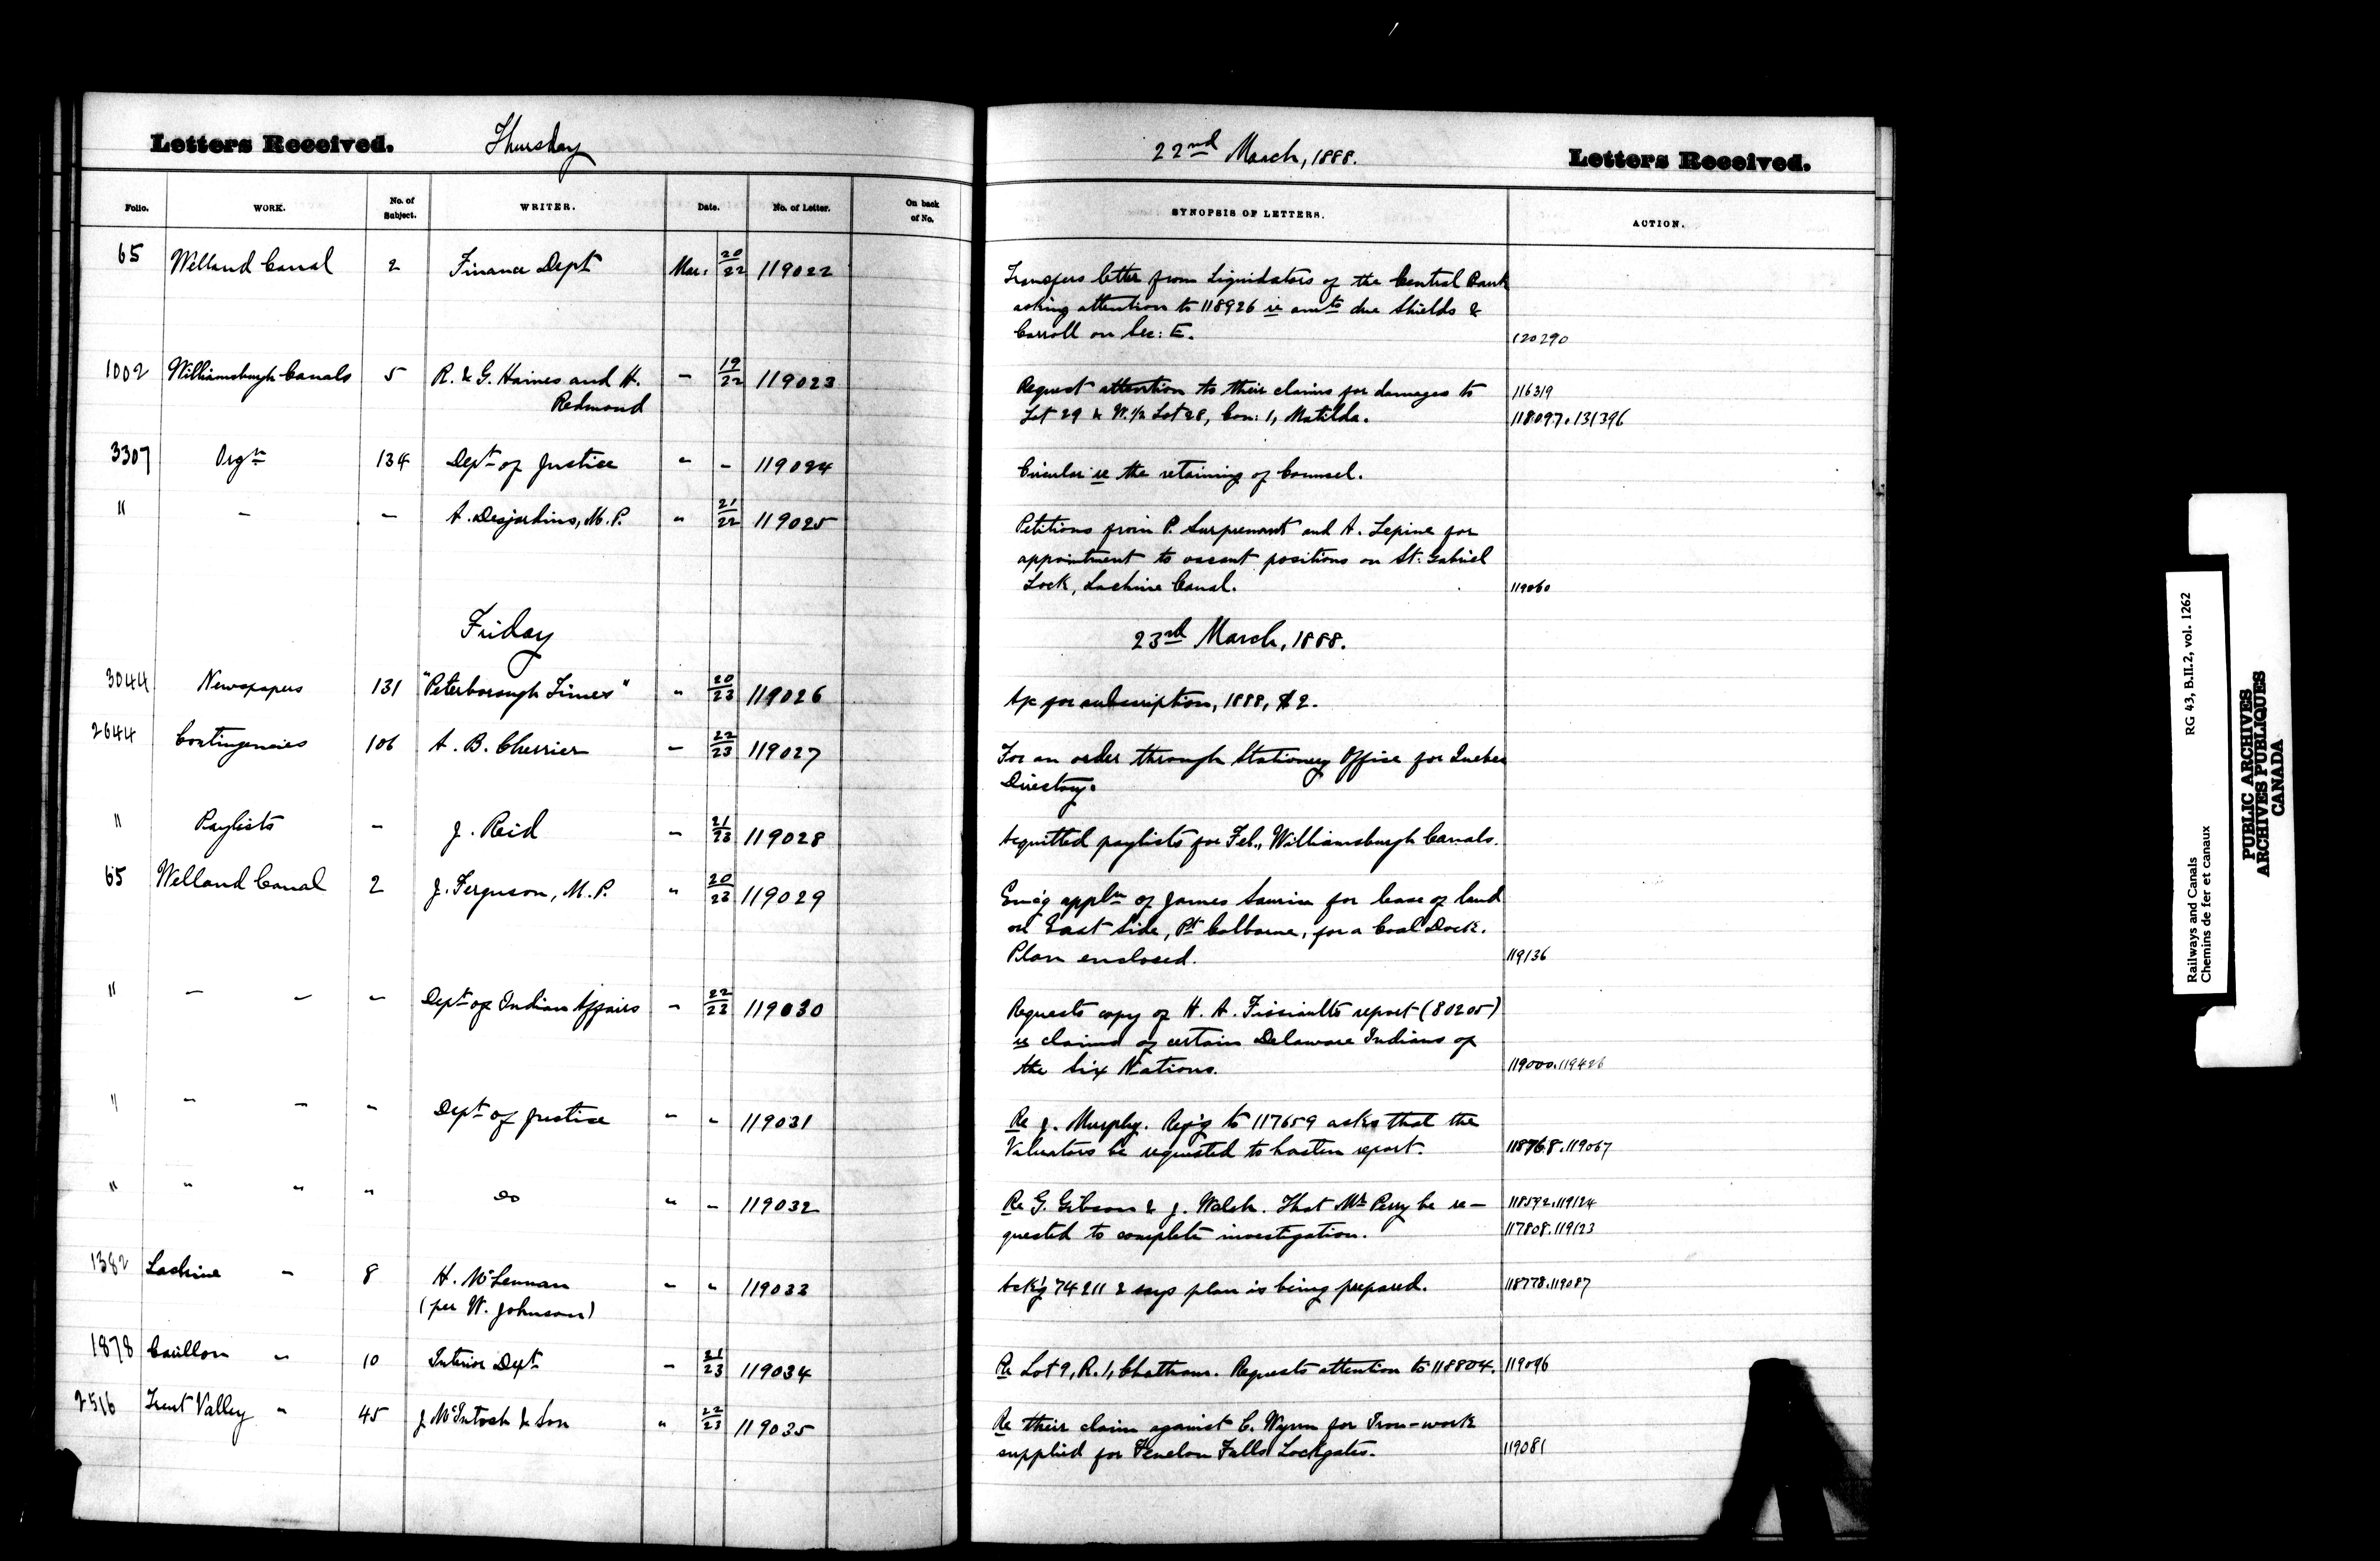 Letters Received. Thursday 22nd March, 1888. Letters Received.
Folio. WORK. No. of Subject. WRITER. Date. No. of Letter. On back of No. SYNOPSIS OF LETTERS. ACTION.
65 Welland Canal 2 Finance Dept Mar: 20/22 119022
Transfers letter from Liquidators of the Central Bank
asking attention to 118926 re amts due Shields &
Carroll on Sec: E. 120290
1002 Williamsburgh Canals 5 R. & G. Haines and H. Redmond " 19/22 119023
Request attention to their claims for damages to 116319
Lot 29 & W. 1/2 Lot 28, Con: 1, Matilda. 118097.131396
3307 Orgn 134 Dept of Justice " " 119024
Circular re the retaining of Counsel.
" " " A. Desjardins, M.P. " 21/22 119025
Petitions from P. Surprenant and A. Lepine for
appointment to vacant positions on St: Gabriel
Lock, Lachine Canal. 119060
Friday 23rd March, 1888.
3044 Newspapers 131 "Peterborough Times" " 20/23 119026
A/c for subscription, 1888, $2.
2644 Contingencies 106 A. B. Cherrier " 22/23 119027
For an order through Stationery Office for Quebec
Directory.
" Paylists " J. Reid " 21/23 119028
Acquitted paylists for Feb., Williamsburgh Canals.
65 Welland Canal 2 J. Ferguson, M.P. " 20/23 119029
Enc'g appln of James for lease of land
on East side, Pt Colborne, for a Coal Dock.
Plan enclosed. 119136
" " " " Dept of Indian Affairs " 22/23 119030
Requests copy of H. A. report (80205)
re claims of certain Delaware Indians of
the Six Nations. 119000.119426
" " " " Dept of Justice " " 119031
Re J. Murphy. Rep'g to 117659 asks that the
Valuators be requested to hasten report. 118768.119067
" " " " do " " 119032
Re G. Gibson & J. Walsh. That Mr Perry be re- 118592.119124
quested to complete investigation. 117808.119123
1382 Lachine " 8 H. McLennan " " 119033
(per W. Johnson)
Ack'g 74211 & says plan is being prepared. 118778.119087
1878 Carillon " 10 Interior Dept " 21/23 119034
Re Lot 9, R. 1, Chatham. Requests attention to 118804. 119096
2516 Trent Valley " 45 J McIntosh & Son " 22/23 119035
Re their claim against C. Wynn for Iron-work
supplied for Fenelon Falls Lockgates. 119081
Railways and Canals RG 43, B.II.2, vol. 1262
Chemins de fer et canaux
PUBLIC ARCHIVES
ARCHIVES PUBLIQUES
CANADA